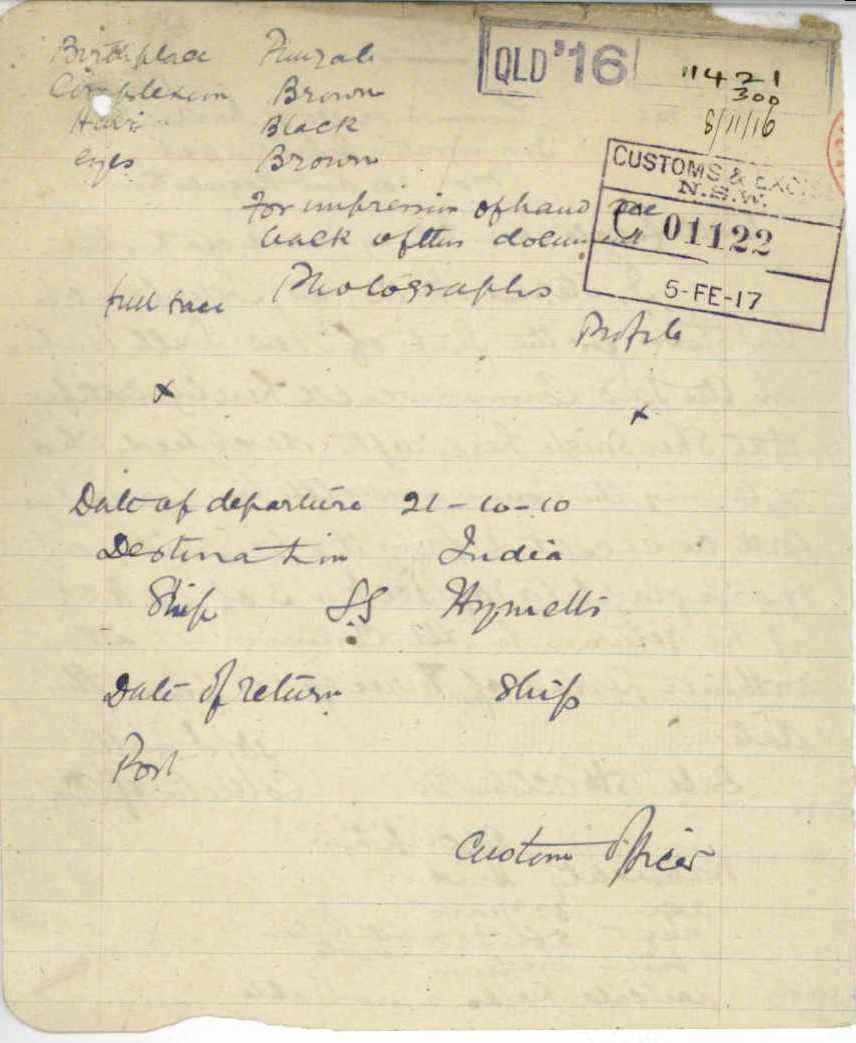 Birthplace Punjab
Complexion Brown
Hair Black
eyes Brown
For impression of hand see
back of this document
Photographs
full face
Profile
x
x
Date of departure 21-10-10
Destination India
Ship SS Hymettus
Date of return Ship
Port
Custom Officer
QLD '16
11421
300
8/11/16
CUSTOMS & EXCISE
N.S.W.
C 01122
5-FE-17